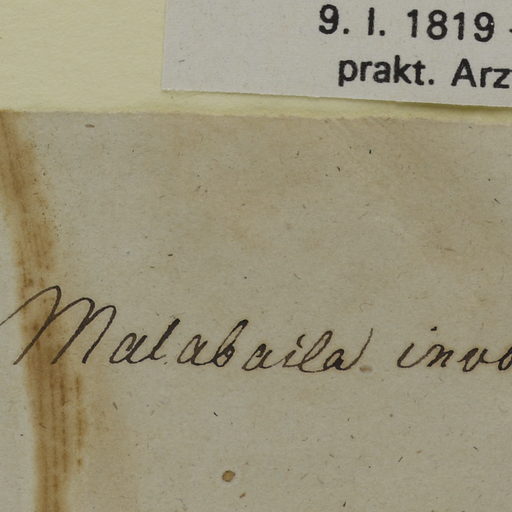 9. I. 1819 -
prakt. Arz
Malabaila invo